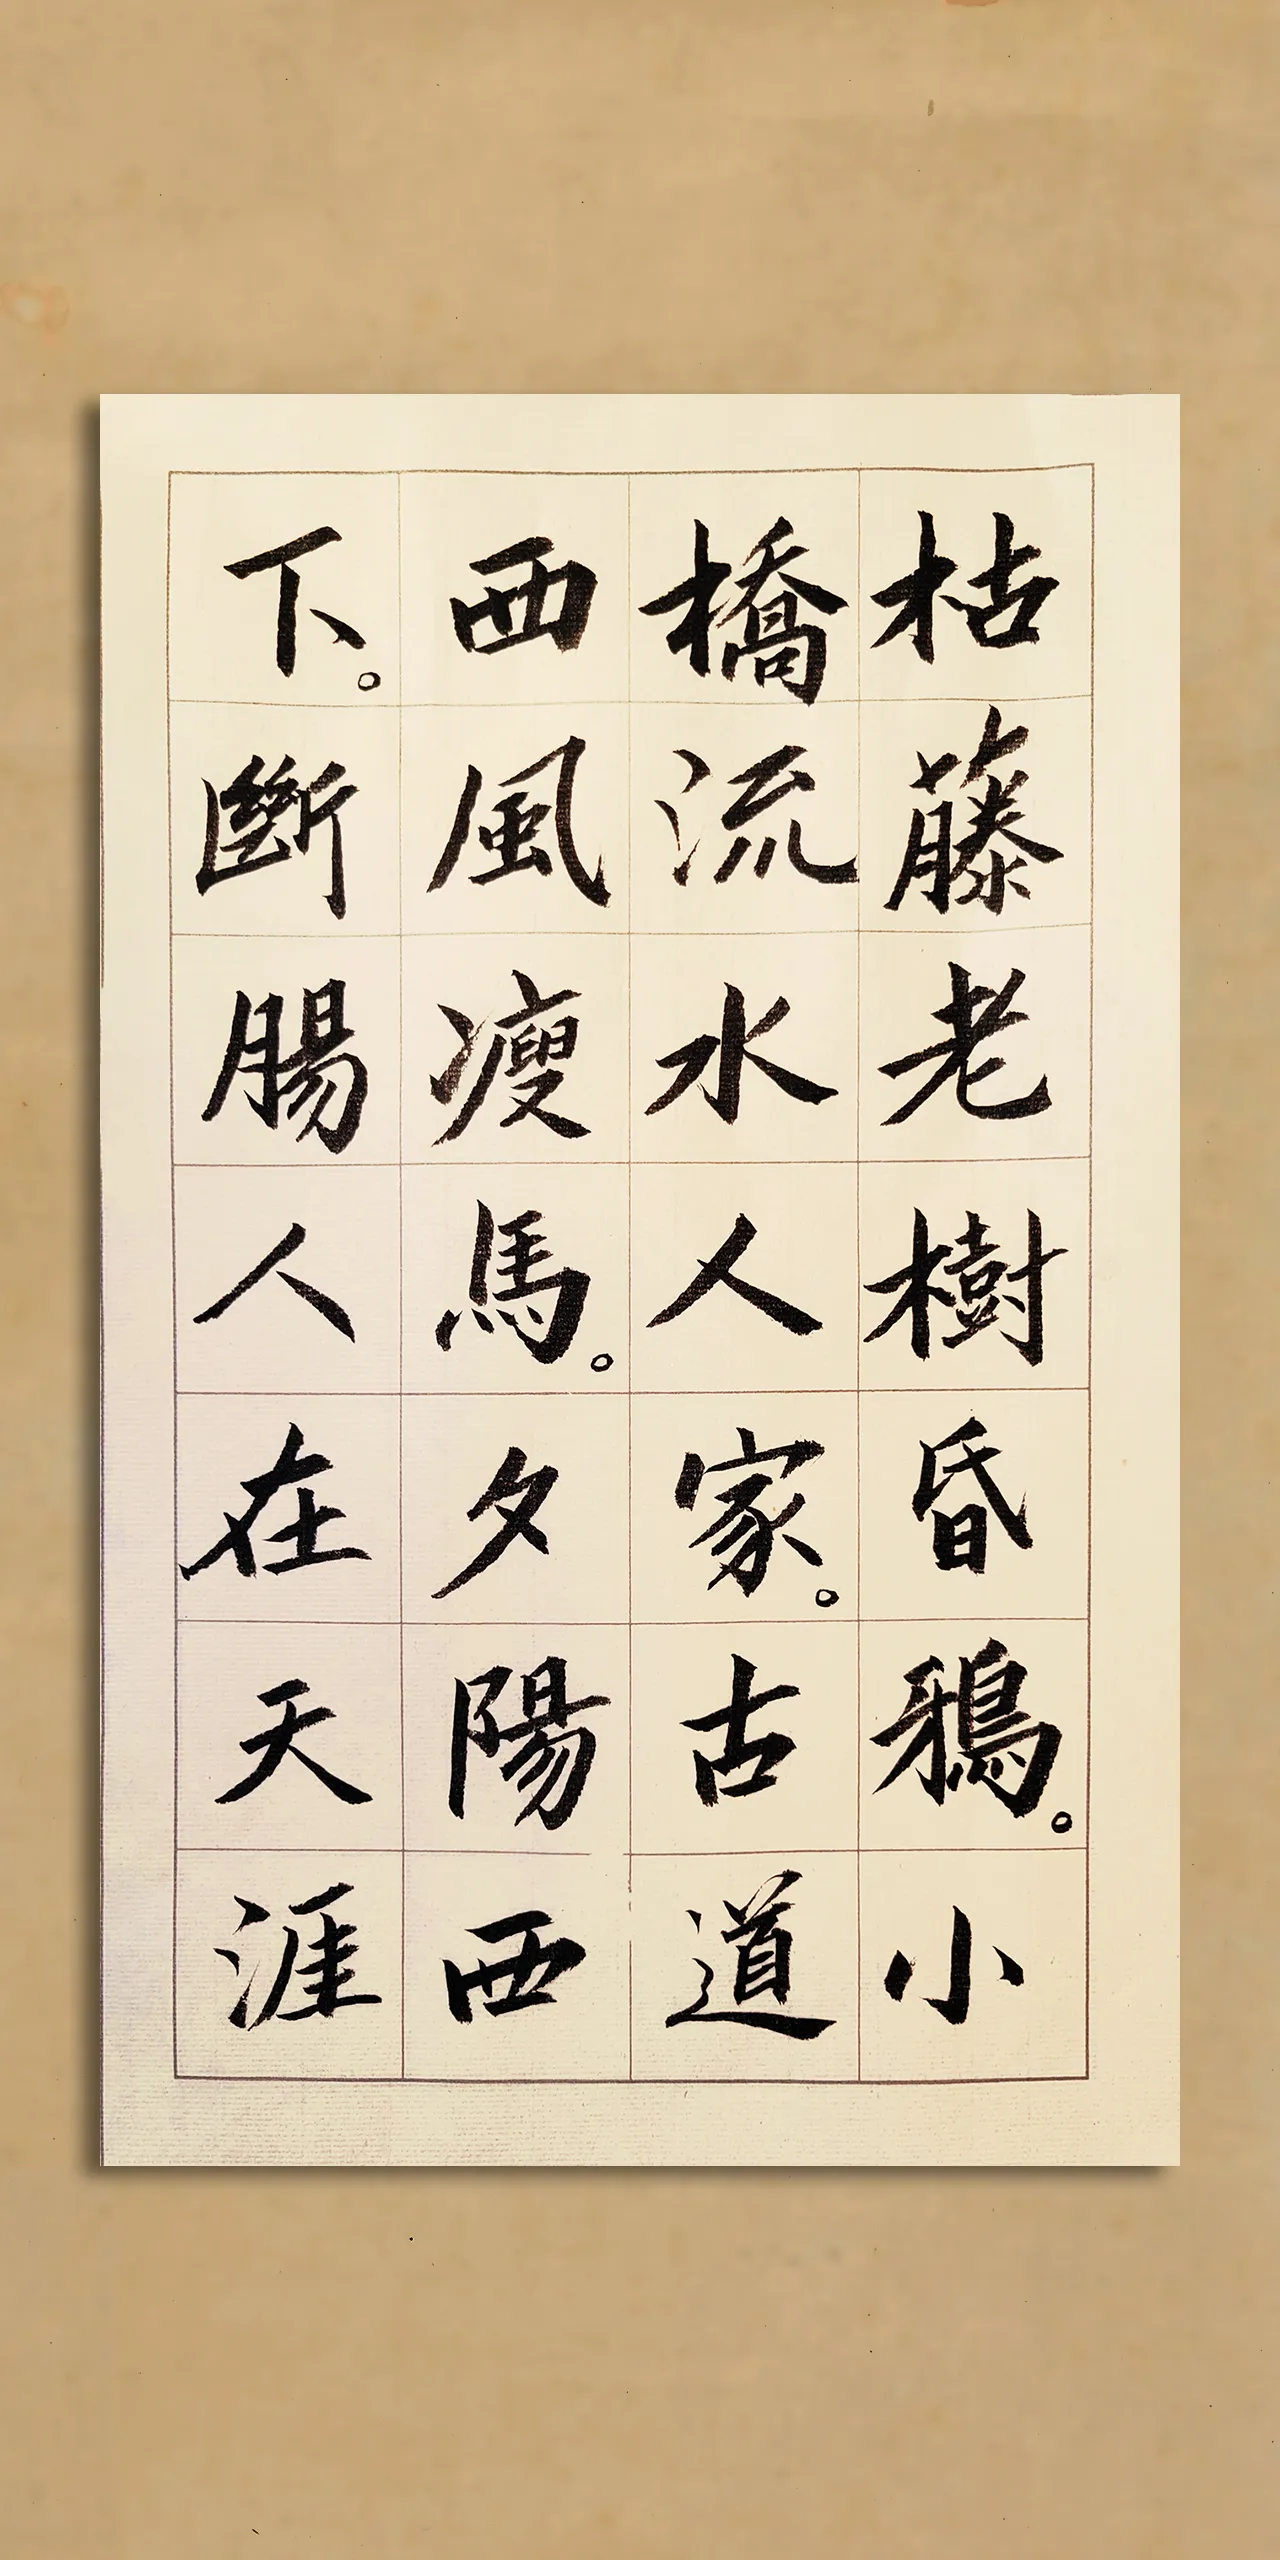 枯藤老樹昏鴉。小
橋流水人家。古道
西風瘦馬。夕陽西
下。斷腸人在天涯